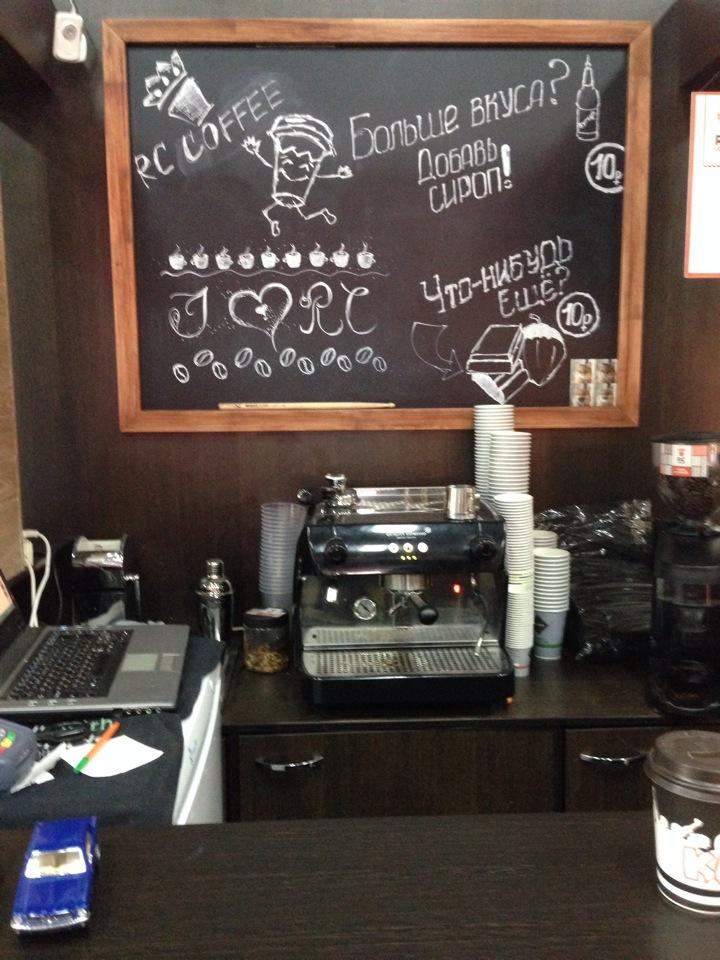 RC COFFEE
Больше вкуса?
Добавь
сироп!
10р
I RC
Что-нибудь
ещё?
10р